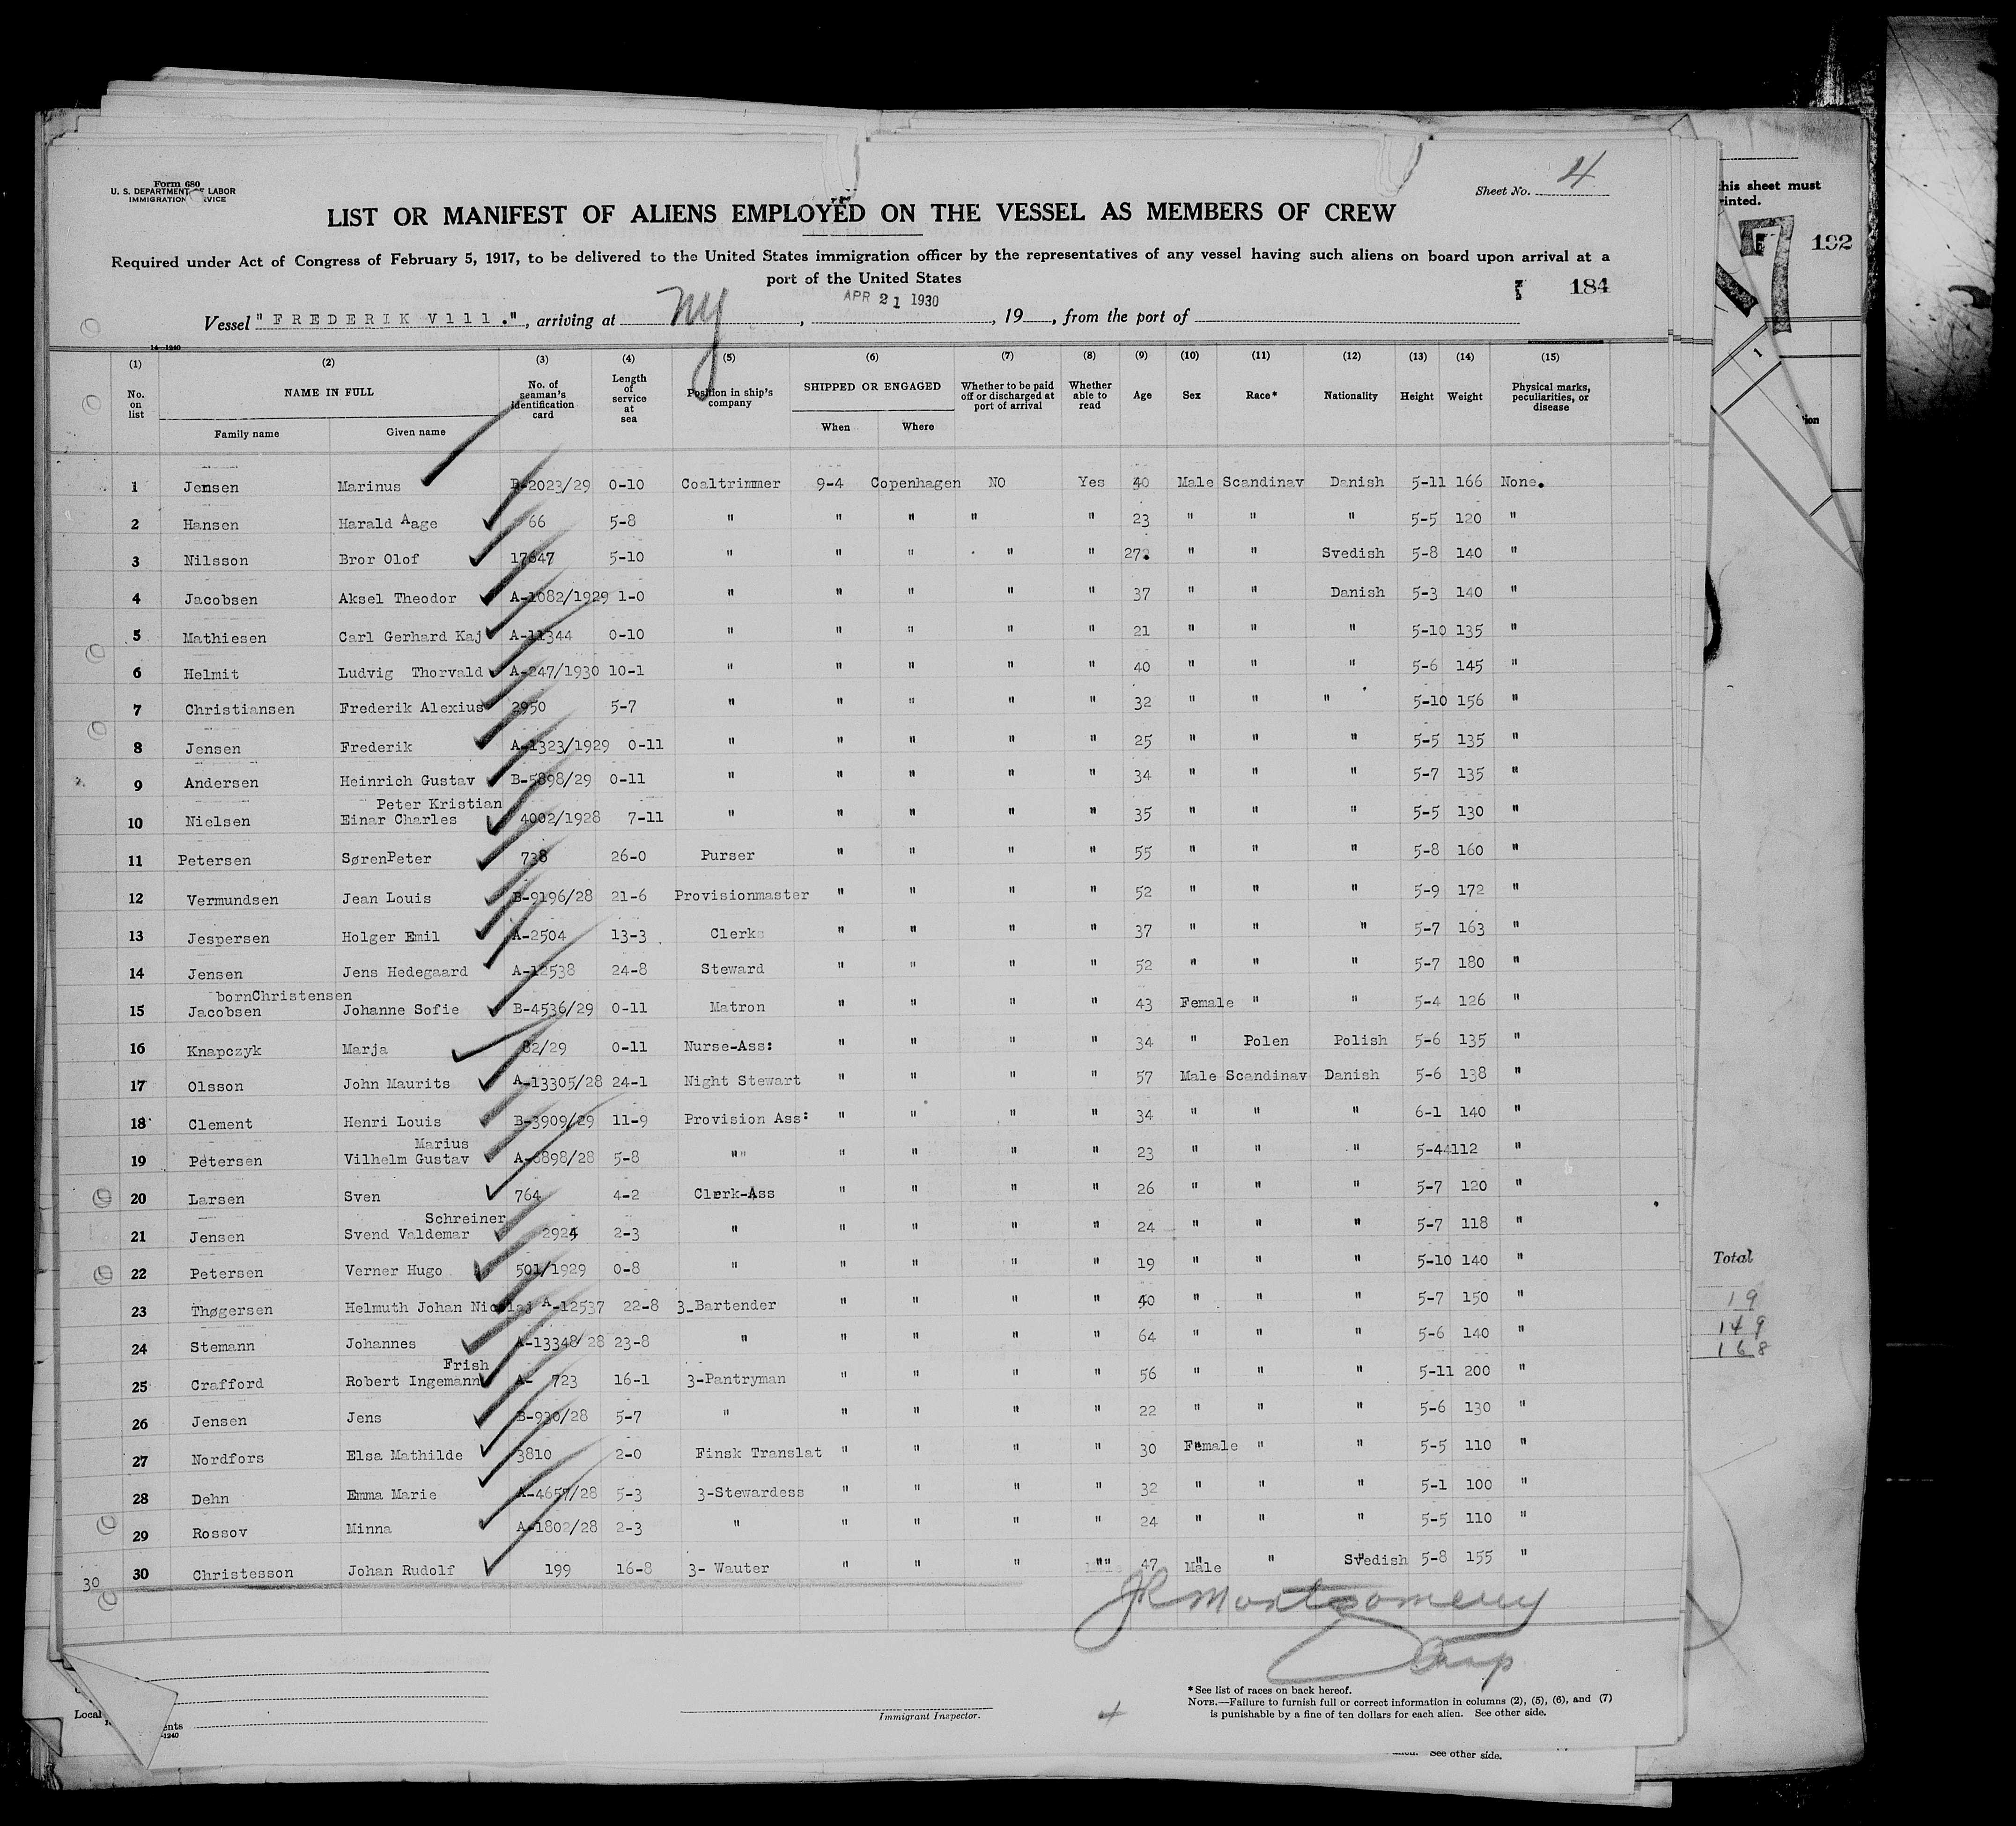 Form 680
U. S. DEPARTMENT OF LABOR
IMMIGRATION SERVICE
Sheet No. 4
LIST OR MANIFEST OF ALIENS EMPLOYED ON THE VESSEL AS MEMBERS OF CREW
Required under Act of Congress of February 5, 1917, to be delivered to the United States immigration officer by the representatives of any vessel having such aliens on board upon arrival at a
port of the United States
184
APR 21 1930
Vessel "FREDERIK V111.", arriving at NY, , 19 , from the port of
14-1240
(1) (2) (3) (4) (5) (6) (7) (8) (9) (10) (11) (12) (13) (14) (15)
No. on list NAME IN FULL No. of seaman's identification card Length of service at sea Position in ship's company SHIPPED OR ENGAGED Whether to be paid off or discharged at port of arrival Whether able to read Age Sex Race* Nationality Height Weight Physical marks, peculiarities, or disease
Family name Given name When Where
1 Jensen Marinus B-2023/29 0-10 Coaltrimmer 9-4 Copenhagen NO Yes 40 Male Scandinav Danish 5-11 166 None.
2 Hansen Harald Aage 66 5-8 " " " " " 23 " " " 5-5 120 "
3 Nilsson Bror Olof 17647 5-10 " " " " " 27 " " Svedish 5-8 140 "
4 Jacobsen Aksel Theodor A-1682/1929 1-0 " " " " " 37 " " Danish 5-3 140 "
5 Mathiesen Carl Gerhard Kaj A-11344 0-10 " " " " " 21 " " " 5-10 135 "
6 Helmit Ludvig Thorvald A-247/1930 10-1 " " " " " 40 " " " 5-6 145 "
7 Christiansen Frederik Alexius 2950 5-7 " " " " " 32 " " " 5-10 156 "
8 Jensen Frederik A-1323/1929 0-11 " " " " " 25 " " " 5-5 135 "
9 Andersen Heinrich Gustav B-5898/29 0-11 " " " " " 34 " " " 5-7 135 "
Peter Kristian
10 Nielsen Einar Charles 4002/1928 7-11 " " " " " 35 " " " 5-5 130 "
11 Petersen SørenPeter 738 26-0 Purser " " " " 55 " " " 5-8 160 "
12 Vermundsen Jean Louis B-9196/28 21-6 Provisionmaster " " " " 52 " " " 5-9 172 "
13 Jespersen Holger Emil A-2504 13-3 Clerk " " " " 37 " " " 5-7 163 "
14 Jensen Jens Hedegaard A-12538 24-8 Steward " " " " 52 " " " 5-7 180 "
bornChristensen
15 Jacobsen Johanne Sofie B-4536/29 0-11 Matron " " " " 43 Female " " 5-4 126 "
16 Knapczyk Marja 82/29 0-11 Nurse-Ass: " " " " 34 " Polen Polish 5-6 135 "
17 Olsson John Maurits A-13305/28 24-1 Night Stewart " " " " 57 Male Scandinav Danish 5-6 138 "
18 Clement Henri Louis B-3909/29 11-9 Provision Ass: " " " " 34 " " " 6-1 140 "
Marius
19 Petersen Vilhelm Gustav 5-8 "" " " " " 23 " " " 5-44 112 "
20 Larsen Sven 764 4-2 Clerk-Ass " " " " 26 " " " 5-7 120 "
Schreiner
21 Jensen Svend Valdemar 2924 2-3 " " " " " 24 " " " 5-7 118 "
22 Petersen Verner Hugo 501/1929 0-8 " " " " " 19 " " " 5-10 140 "
23 Thøgersen Helmuth Johan Nicolaj A-12537 22-8 3-Bartender " " " " 40 " " " 5-7 150 "
24 Stemann Johannes A-13348/28 23-8 " " " " " 64 " " " 5-6 140 "
Frish
25 Crafford Robert Ingemann A- 723 16-1 3-Pantryman " " " " 56 " " " 5-11 200 "
26 Jensen Jens B-930/28 5-7 " " " " " 22 " " " 5-6 130 "
27 Nordfors Elsa Mathilde 3810 2-0 Finsk Translat " " " " 30 Female " " 5-5 110 "
28 Dehn Emma Marie A-4657/28 5-3 3-Stewardess " " " " 32 " " " 5-1 100 "
29 Rossov Minna A-1802/28 2-3 " " " " " 24 " " " 5-5 110 "
30 Christesson Johan Rudolf 199 16-8 3- Wauter " " " "" 47 Male " Svedish 5-8 155 "
30
JR Montgomery
Insp
Immigrant Inspector.
*See list of races on back hereof.
NOTE.—Failure to furnish full or correct information in columns (2), (5), (6), and (7)
is punishable by a fine of ten dollars for each alien. See other side.
Local
ents
-1240
See other side.
this sheet must
rinted.
192
1
ion
Total
19
149
168